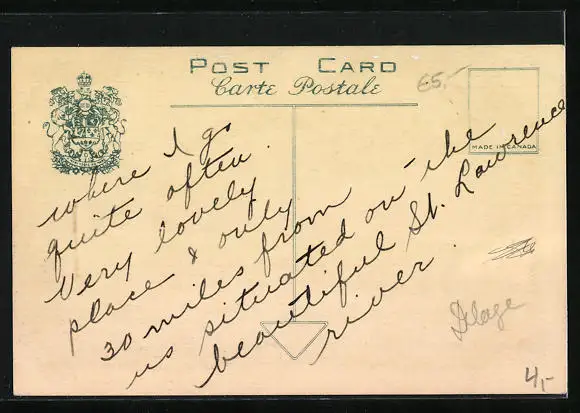 POST CARD
Carte Postale
65,-
MADE IN CANADA
where I go
quite often.
Very lovely
place & only
30 miles from
us situated on the
beautiful St. Lawrence
river.
4,-